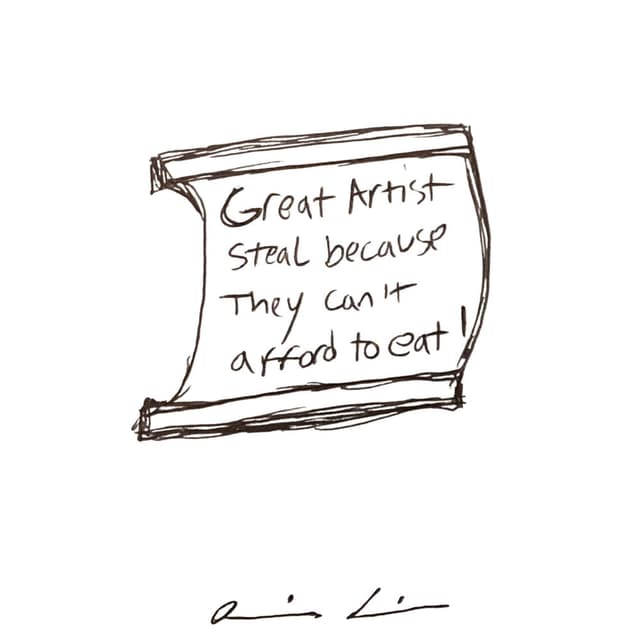 Great Artist
Steal because
They can't
afford to eat!